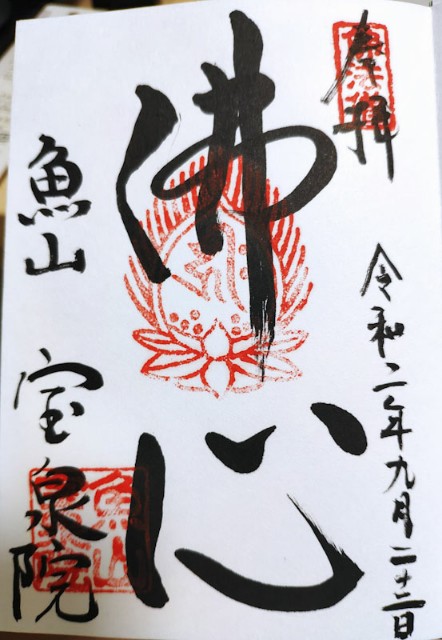 奉拝
令和二年九月二十二日
佛心
魚山 宝泉院
魚山